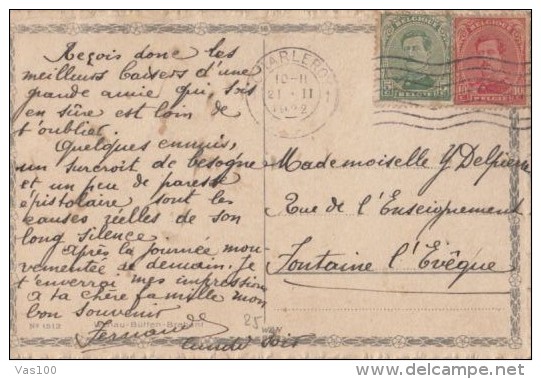 Reçois donc les
meilleurs baisers d'une
grande amie qui, sois
en sûre est loin de
t'oublier.
Quelques ennuis,
un surcroit de besogne
et un peu de paresse
épistolaire sont les
causes réelles de son
long silence
Après la journée mou-
vementée de demain, je
t'enverrai mes impressions
A ta chère famille mon
bon souvenir
Fernande
Lundi soir
CHARLEROI
10-11
21 II
1922
BELGIQUE
BELGIE
BELGIQUE
10 BELGIE 10
Mademoiselle Y Delpierre
Rue de l'Enseignement
Fontaine l'Evêque
No 1513
25
WAN
Vas100
delcampe.net